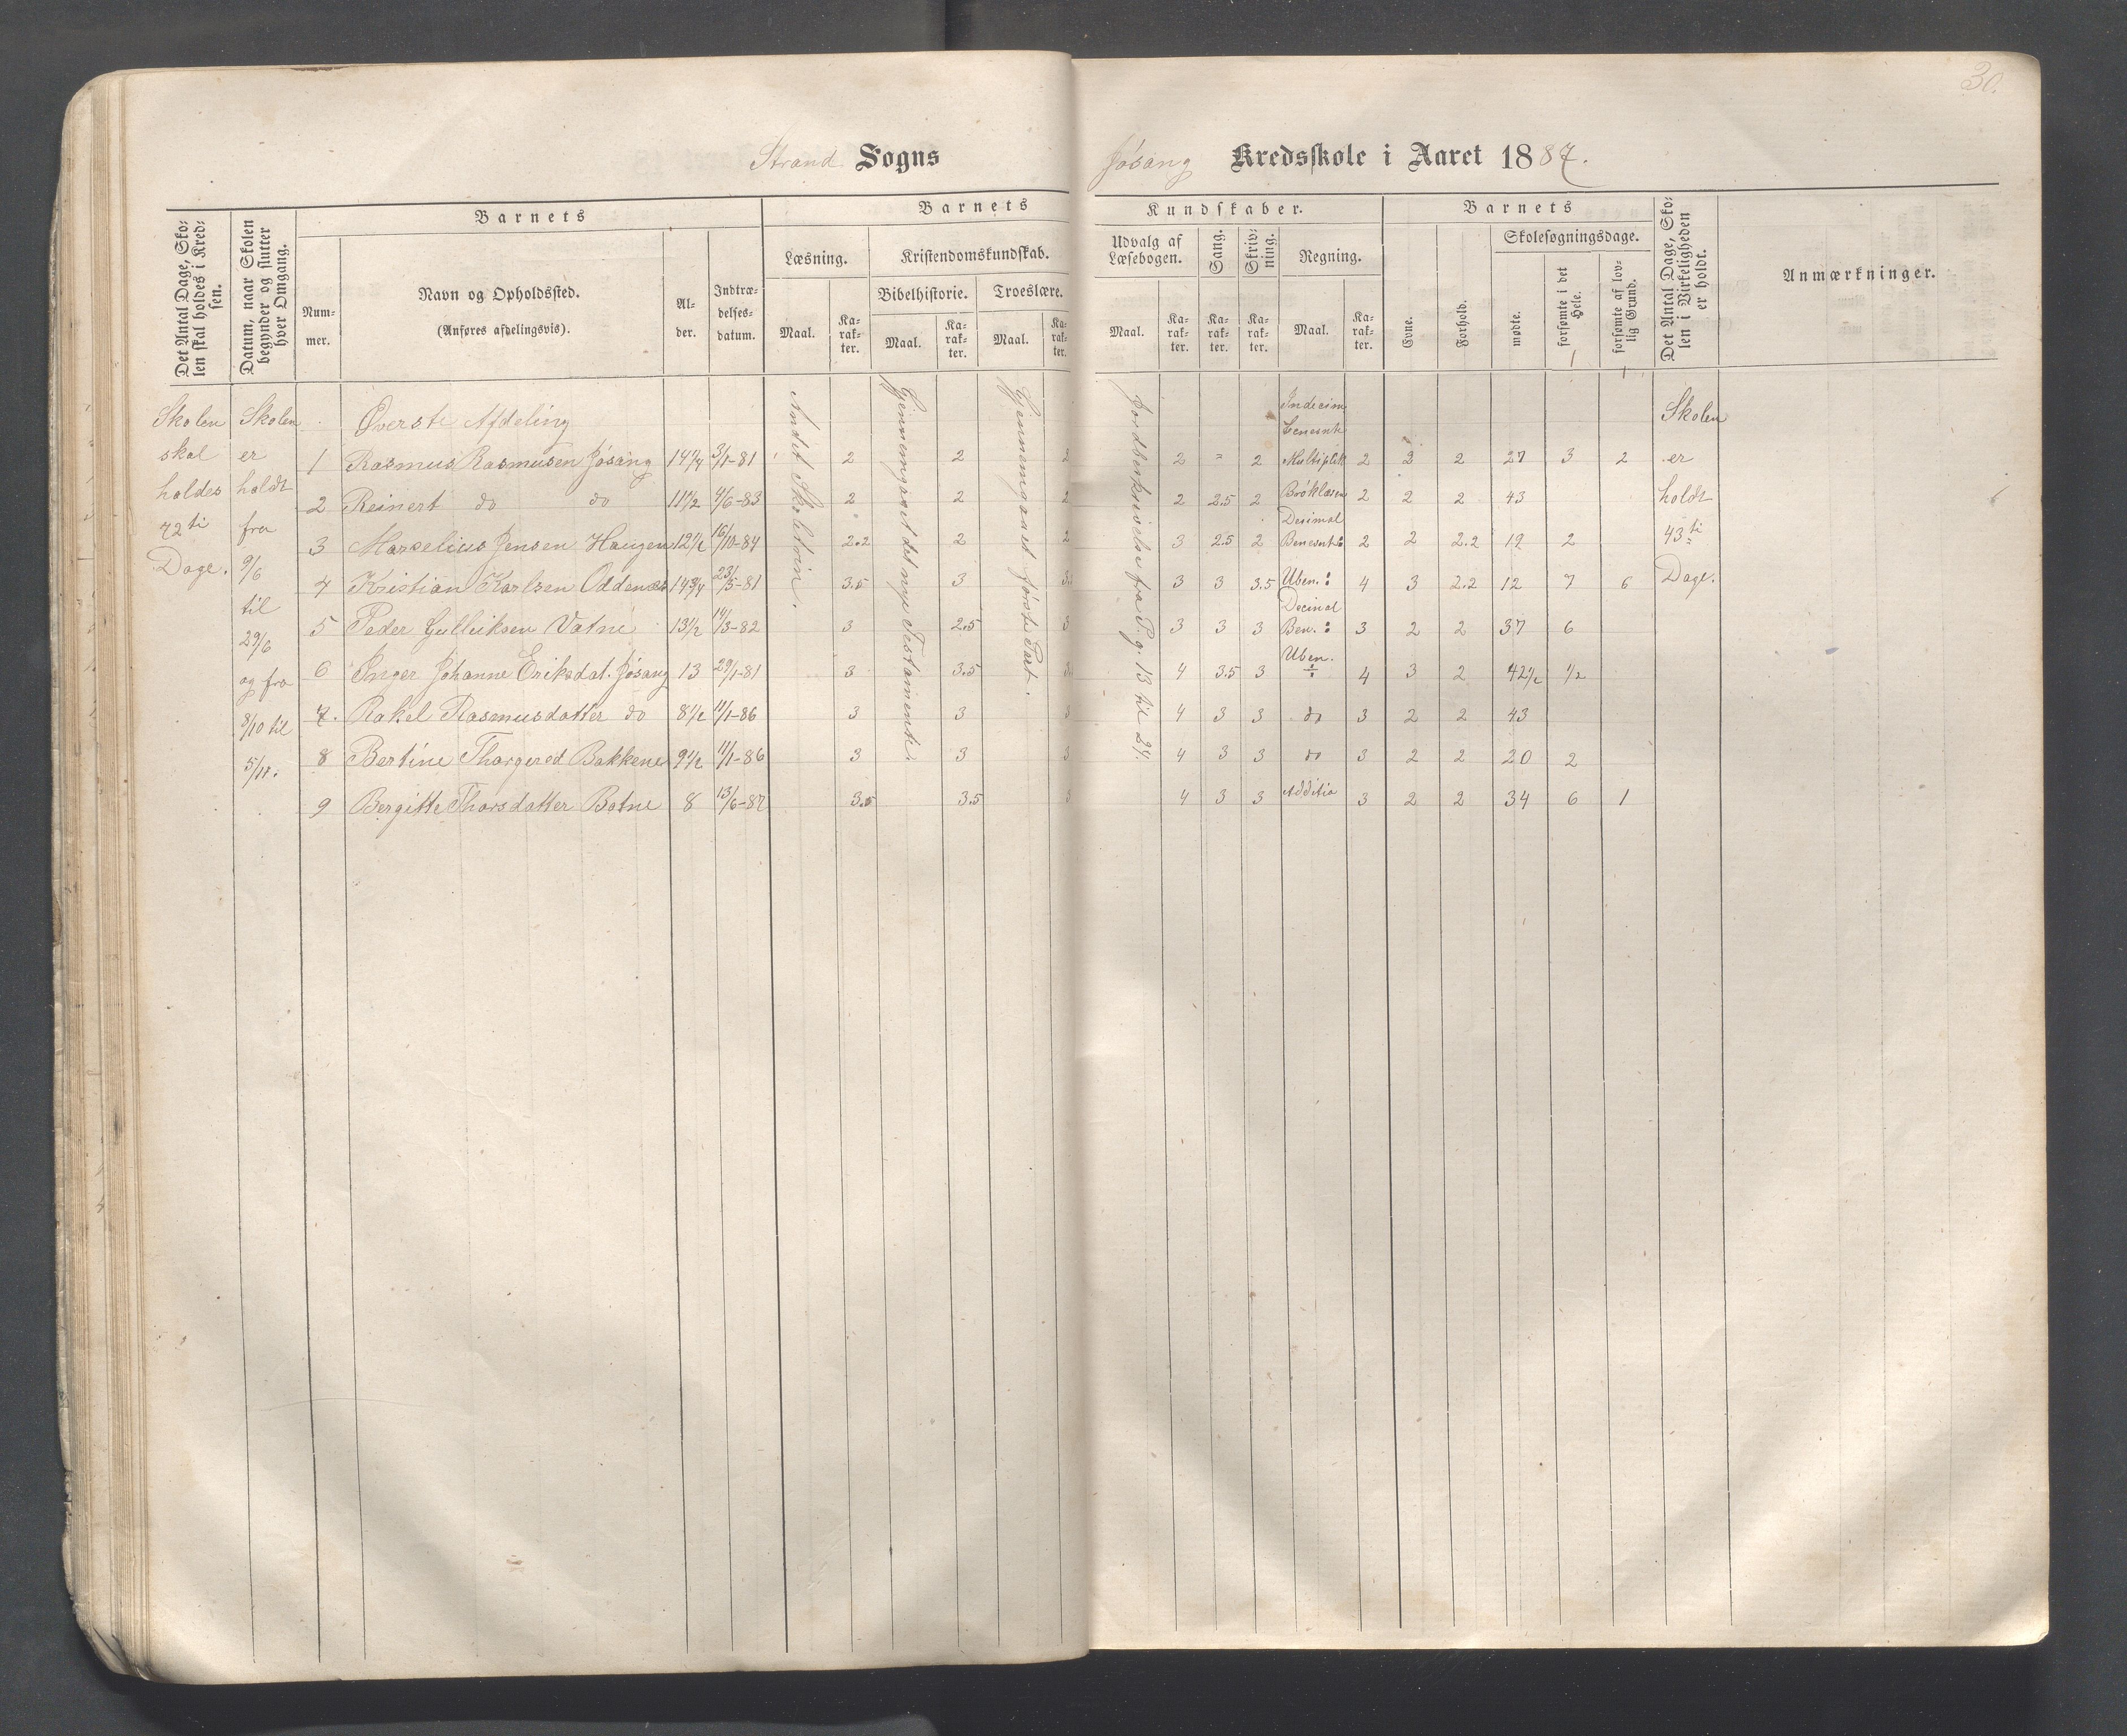 30.
Strand Sogns
Jósang Kredsskole i Aaret 1887.
Det Antal Dage, Skolen skal holdes i Kredsen.
Datum, naar Skolen begynder og slutter hver Omgang.
Barnets
Nummer.
Navn og Opholdssted.
(Anføres afdelingsvis).
Alder.
Indtrædelsesdatum.
Barnets
Læsning.
Maal.
Karakter.
Kristendomskundskab.
Bibelhistorie.
Maal.
Karakter.
Troeslære.
Maal.
Karakter.
Kundskaber.
Udvalg af Læsebogen.
Maal.
Karakter.
Sang.
Karakter.
Skrivning.
Karakter.
Regning.
Maal.
Karakter.
Barnets
Evne.
Forhold.
Skolesøgningsdage.
mødte.
forsømte i det Hele.
forsømte af lovlig Grund.
Det Antal Dage, Skolen i Virkeligheden er holdt.
Anmærkninger.
Skolen skal holdes 72 ti Dage.
Skolen er holdt fra 9/6 til 29/6 og fra 8/10 til 5/11.
Øverste Afdeling
Andet Skoletrin.
Gjennemgaaet det nye Testamente.
Gjennemgaaet første Part.
Jordbeskrivelse fra P.g. 13 til 24.
1 Rasmus Rasmusen Jósang 14 1/4 3/1-81 2 2 2 2 = 2 Multiplik 2 2 2 27 3 2
2 Reinert do do 11 1/2 4/6-83 2 2 2 2 2.5 2 2 2 2 43
3 Marselius Jensen Haugen 12 1/2 16/10-84 2.2 2 2 3 2.5 2 Desimal Benevnt : 2 2 2.2 19 2
4 Kristian Karlsen Oddenes 14 3/4 23/5-81 3.5 3 3 3 3.5 Uben. : 4 3 2.2 12 7 6
5 Peder Gulliksen Vatne 13 1/2 14/3-82 3 2.5 3 3 3 3 Decimal Ben. : 3 2 2 37 6
6 Inger Johanne Eriksdat. Jósang 13 29/1-81 3 3.5 4 3.5 3 Uben. ÷ 4 3 2 42 1/2 1/2
7. Rakel Rasmusdatter do 8 1/2 11/1-86 3 3 3 4 3 3 do 3 2 2 43
8 Bertine Thorgered Bakkene 9 1/2 11/1-86 3 3 3 4 3 3 do 3 2 2 20 2
9 Bergitte Thorsdatter Botne 8 13/6-87 3.5 3.5 3 4 3 3 Additio 3 2 2 34 6 1
Skolen er holdt 43 ti Dage.